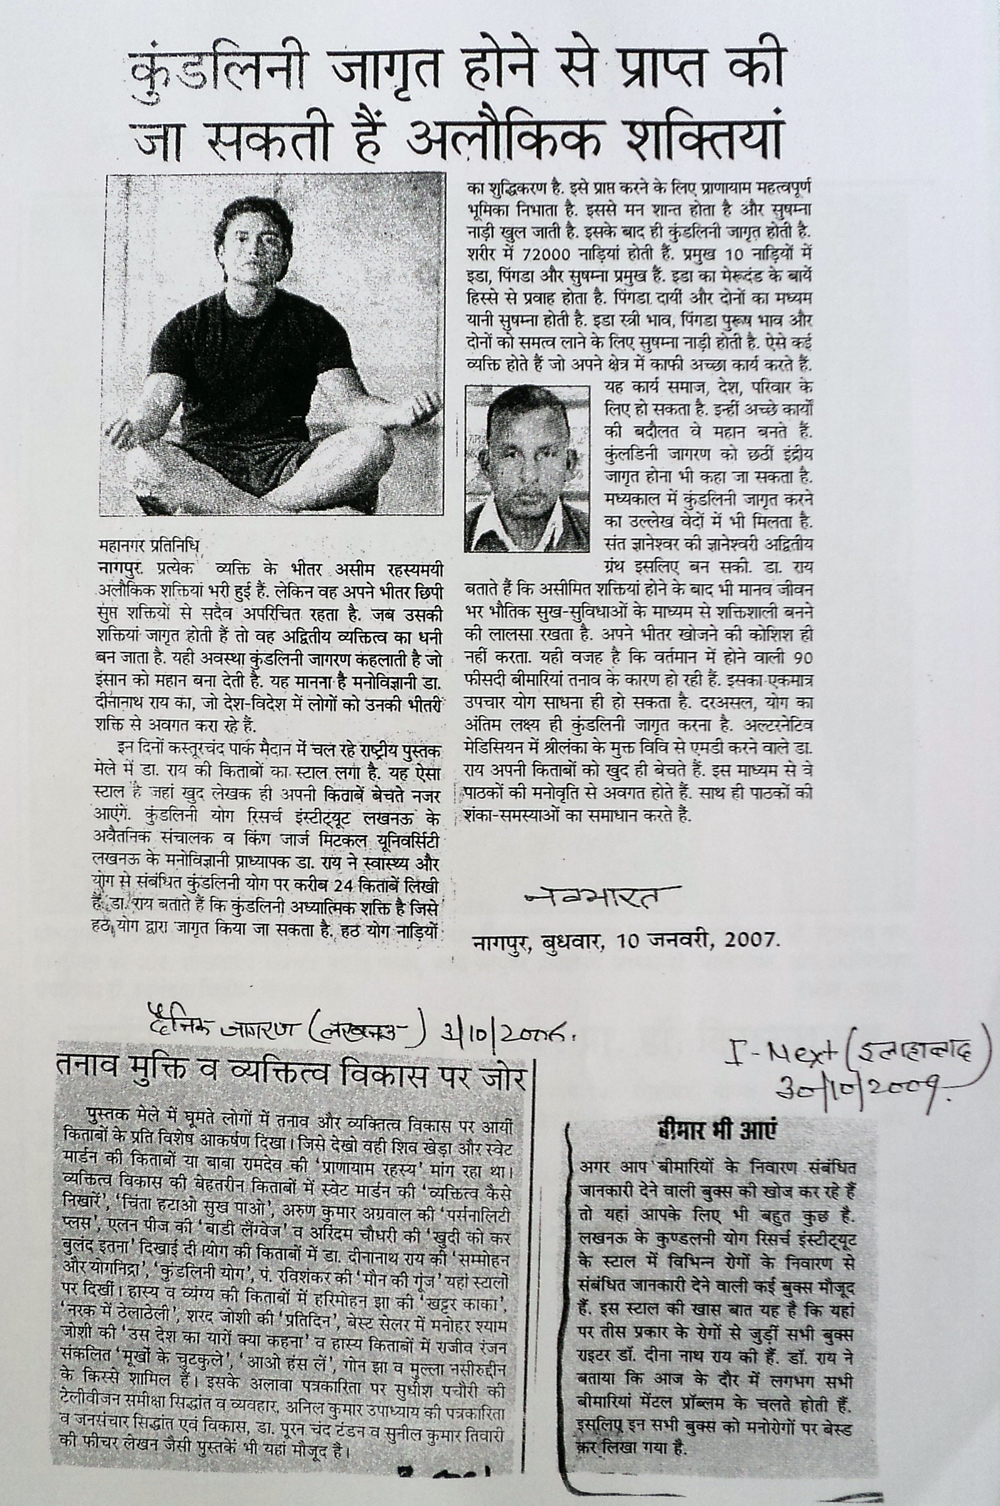 कुंडलिनी जागृत होने से प्राप्त की
जा सकती हैं अलौकिक शक्तियां
महानगर प्रतिनिधि
नागपुर. प्रत्येक व्यक्ति के भीतर असीम रहस्यमयी
अलौकिक शक्तियां भरी हुई हैं. लेकिन वह अपने भीतर छिपी
सुप्त शक्तियों से सदैव अपरिचित रहता है. जब उसकी
शक्तियां जागृत होती हैं तो वह अद्वितीय व्यक्तित्व का धनी
बन जाता है. यही अवस्था कुंडलिनी जागरण कहलाती है जो
इंसान को महान बना देती है. यह मानना है मनोविज्ञानी डा.
दीनानाथ राय का, जो देश-विदेश में लोगों को उनकी भीतरी
शक्ति से अवगत करा रहे हैं.
इन दिनों कस्तूरचंद पार्क मैदान में चल रहे राष्ट्रीय पुस्तक
मेले में डा. राय की किताबों का स्टाल लगा है. यह ऐसा
स्टाल है जहां खुद लेखक ही अपनी किताबें बेचते नजर
आएंगे. कुंडलिनी योग रिसर्च इंस्टीट्यूट लखनऊ के
अवैतनिक संचालक व किंग जार्ज मिटकल यूनिवर्सिटी
लखनऊ के मनोविज्ञानी प्राध्यापक डा. राय ने स्वास्थ्य और
योग से संबंधित कुंडलिनी योग पर करीब 24 किताबें लिखी
हैं. डा. राय बताते हैं कि कुंडलिनी अध्यात्मिक शक्ति है जिसे
हठ योग द्वारा जागृत किया जा सकता है. हठ योग नाड़ियों
का शुद्धिकरण है. इसे प्राप्त करने के लिए प्राणायाम महत्वपूर्ण
भूमिका निभाता है. इससे मन शान्त होता है और सुषम्ना
नाड़ी खुल जाती है. इसके बाद ही कुंडलिनी जागृत होती है.
शरीर में 72000 नाड़ियां होती हैं. प्रमुख 10 नाड़ियों में
इडा, पिंगडा और सुषम्ना प्रमुख हैं. इडा का मेरूदंड के बायें
हिस्से से प्रवाह होता है. पिंगडा दायीं और दोनों का मध्यम
यानी सुषम्ना होती है. इडा स्त्री भाव, पिंगडा पुरूष भाव और
दोनों को समत्व लाने के लिए सुषम्ना नाड़ी होती है. ऐसे कई
व्यक्ति होते हैं जो अपने क्षेत्र में काफी अच्छा कार्य करते हैं.
यह कार्य समाज, देश, परिवार के
लिए हो सकता है. इन्हीं अच्छे कार्यों
की बदौलत वे महान बनते हैं.
कुंलडिनी जागरण को छठीं इंद्रीय
जागृत होना भी कहा जा सकता है.
मध्यकाल में कुंडलिनी जागृत करने
का उल्लेख वेदों में भी मिलता है.
संत ज्ञानेश्वर की ज्ञानेश्वरी अद्वितीय
ग्रंथ इसलिए बन सकी. डा. राय
बताते हैं कि असीमित शक्तियां होने के बाद भी मानव जीवन
भर भौतिक सुख-सुविधाओं के माध्यम से शक्तिशाली बनने
की लालसा रखता है. अपने भीतर खोजने की कोशिश ही
नहीं करता. यही वजह है कि वर्तमान में होने वाली 90
फीसदी बीमारियां तनाव के कारण हो रही हैं. इसका एकमात्र
उपचार योग साधना ही हो सकता है. दरअसल, योग का
अंतिम लक्ष्य ही कुंडलिनी जागृत करना है. अल्टरनेटिव
मेडिसियन में श्रीलंका के मुक्त विवि से एमडी करने वाले डा.
राय अपनी किताबों को खुद ही बेचते हैं. इस माध्यम से वे
पाठकों की मनोवृति से अवगत होते हैं. साथ ही पाठकों की
शंका-समस्याओं का समाधान करते हैं.
नवभारत
नागपुर, बुधवार, 10 जनवरी, 2007.
दैनिक जागरण (लखनऊ) 3/10/2006.
तनाव मुक्ति व व्यक्तित्व विकास पर जोर
पुस्तक मेले में घूमते लोगों में तनाव और व्यक्तित्व विकास पर आयीं
किताबों के प्रति विशेष आकर्षण दिखा। जिसे देखो वही शिव खेड़ा और स्वेट
मार्डन की किताबों या बाबा रामदेव की 'प्राणायाम रहस्य' मांग रहा था।
व्यक्तित्व विकास की बेहतरीन किताबों में स्वेट मार्डन की 'व्यक्तित्व कैसे
निखारें', 'चिंता हटाओ सुख पाओ', अरुण कुमार अग्रवाल की 'पर्सनालिटी
प्लस', एलन पीज की 'बाडी लैंग्वेज' व अरिंदम चौधरी की 'खुदी को कर
बुलंद इतना' दिखाई दी। योग की किताबों में डा. दीनानाथ राय की 'सम्मोहन
और योगनिद्रा', 'कुंडलिनी योग', पं. रविशंकर की 'मौन की गूंज' यहां स्टालों
पर दिखीं। हास्य व व्यंग्य की किताबों में हरिमोहन झा की 'खट्टर काका',
'नरक में ठेलाठेली', शरद जोशी की 'प्रतिदिन', बेस्ट सेलर में मनोहर श्याम
जोशी की 'उस देश का यारों क्या कहना' व हास्य किताबों में राजीव रंजन
संकलित 'मूर्खों के चुटकुले', 'आओ हंस लें', गोन झा व मुल्ला नसीरुद्दीन
के किस्से शामिल हैं। इसके अलावा पत्रकारिता पर सुधीश पचौरी की
टेलीवीजन समीक्षा सिद्धांत व व्यवहार, अनिल कुमार उपाध्याय की पत्रकारिता
व जनसंचार सिद्धांत एवं विकास, डा. पूरन चंद टंडन व सुनील कुमार तिवारी
की फीचर लेखन जैसी पुस्तकें भी यहां मौजूद है।
I-Next (इलाहाबाद)
30/10/2009.
बीमार भी आएं
अगर आप बीमारियों के निवारण संबंधित
जानकारी देने वाली बुक्स की खोज कर रहे हैं
तो यहां आपके लिए भी बहुत कुछ है.
लखनऊ के कुण्डलनी योग रिसर्च इंस्टीट्यूट
के स्टाल में विभिन्न रोगों के निवारण से
संबंधित जानकारी देने वाली कई बुक्स मौजूद
हैं. इस स्टाल की खास बात यह है कि यहां
पर तीस प्रकार के रोगों से जुड़ीं सभी बुक्स
राइटर डॉ. दीना नाथ राय की हैं. डॉ. राय ने
बताया कि आज के दौर में लगभग सभी
बीमारियां मेंटल प्रॉब्लम के चलते होती हैं.
इसलिए इन सभी बुक्स को मनोरोगों पर बेस्ड
कर लिखा गया है.